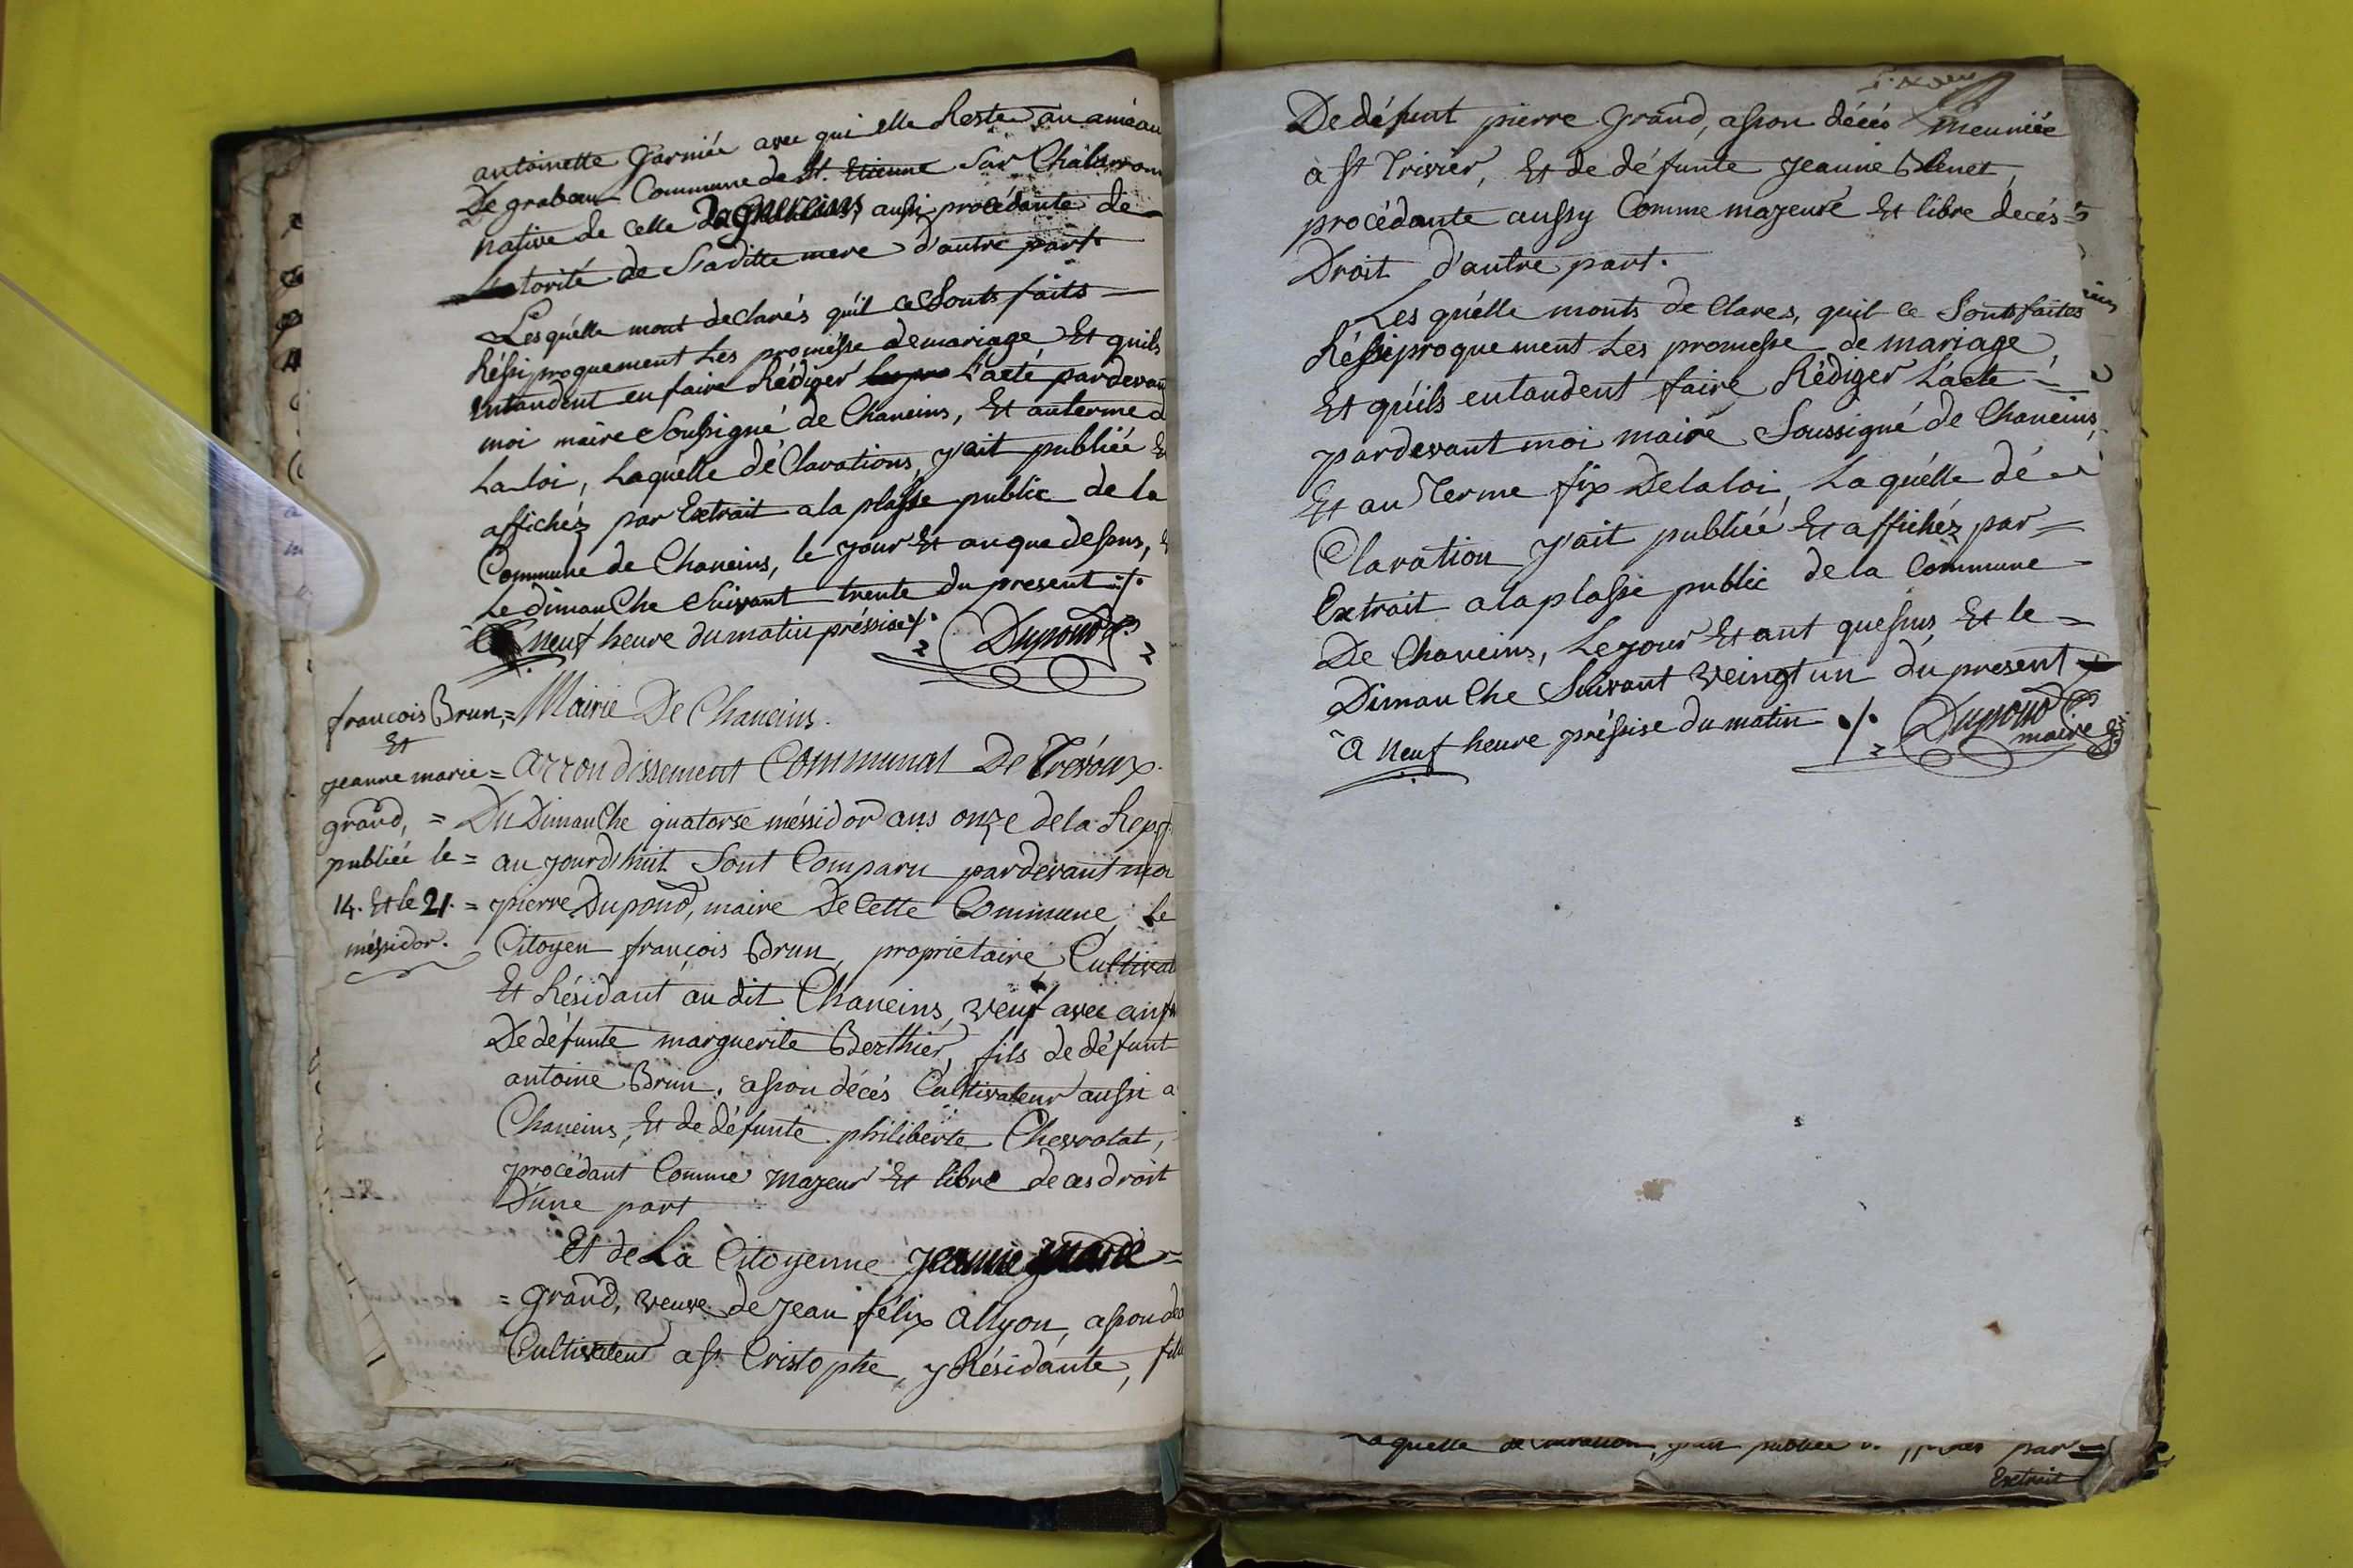 antoinette Garniée avec qui elle Reste au améau
De grabau Commune de St. Etienne Sur Chalaron
native de celle Dagnereins, aussi procédante de
Lautorité de Saditte mere d'autre part.
Lesquélle mont declarés qu'il ce Sonts faits
Réssiproquement Les promésse de mariage Et quils
entandent en faire Rédiger L'acte, pardevant
moi maire Soussigné de Chaneins, Et auterme d
La loi, Laquélle déClarations, j'ait publiée Et
affichéz par Extrait a la plasse public de la
Commune de Chaneins, le jour Et an que dessus, E
Le dimanChe Suivant trente du present ./.
neuf heure du matin préssise ./. Dupond
françois Brun, = Mairie De Chaneins.
Et
jeanne marie = arrondissement Communal De Trévoux.
grand, = Du DimanChe quatorse méssidor ans onze de la Rep.
publiée le = au jourd'huit Sont Comparu pardevant moi
14. Et le 21. = pierre Dupond, maire De Cette Commune, Le
méssidor. Citoyen françois Brun, propriétaire, Cultivat
Et Résidant au dit Chaneins, veuf avec anf
De défunte marguerite Berthier, fils de défunt
antoine Brun, asson décés Cultivateur aussi a
Chaneins, Et de défunte philiberte Chevrolat,
procédant Comme majeur Et libre de ces droit
D'une part
Et de La Citoyenne jeanne marie =
= grand, veuve de jean félix allyon, asson déc
Cultivateur a St Cristophe, y Résidante, fill
De défunt pierre Grand, asson décés meuniée
à St Trivier, Et de défunte jeanne Blenet,
procédante aussy Comme majeure Et libre de cés =
Droit d'autre part.
Les quélle monts de Clares, quil ce Sonts faites
Réssiproquement Les promesse de mariage,
Et qu'ils entandent faire Rédiger L'acte =
pardevant moi maire Soussigné de Chaneins,
Et au Terme fix De la loi, Laquélle dé
Claration j'ait publiéé Et affichéz par =
Extrait a la plasse public de la Commune =
De Chaneins, Le jour Et ant quesus, Et le =
DimanChe Suivant veingt un du present
a neuf heure préssise du matin ./. Dupond
maire
Laquelle de Claration, j'ait publiée par =
Extrait